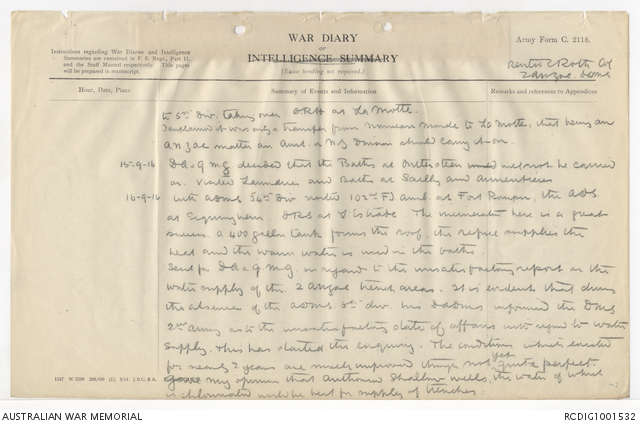 WAR DIARY
or
INTELLIGENCE SUMMARY
(Erase heading not required.)
Army Form C. 2118.
Instructions regarding War Diaries and Intelligence
Summaries are contained in F. S. Regs., Part II.
and the Staff Manual respectively. Title pages
will be prepared in manuscript.
Col
2 Anzac Corps
Hour, Date, Place
Summary of Events and Information
Remarks and references to Appendices
to 5th Div. taking over DRS at La Motte.
it was only a transfer from to La Motte, that being an
ANZAC matter an Amb. of NZ Division should carry it on.
15-9-16 DA & QMG decided that the Baths at would not be carried
on. Visited Laundries and Baths at Sailly and Armentieres
16-9-16 with ADMS 54th Div visited 102nd Fd Amb. at Fort Rompu, the ADS
at DRS at L'Estrade. The incinerator here is a great
success a 400 gallon tank forms the roof, the refuse supplies the
heat and the warm water is used in the baths
Sent for DA & QMG in regard to the unsatisfactory report on the
water supply of the 2 Anzac trench areas. It is evident that during
the absence of the ADMS 5th div. his DADMS informed the DMS
2nd Army as to the unsatisfactory state of affairs with regard to water
supply. This has started the enquiry. The conditions which existed
for nearly 2 years are much improved though not yet quite perfect.
Gave my opinion that shallow wells, the water of which
is chlorinated would be best for supply of trenches.
1247 W 3299 200,000 (E) 8/14 J.B.C. & A.
AUSTRALIAN WAR MEMORIAL
RCDIG1001532